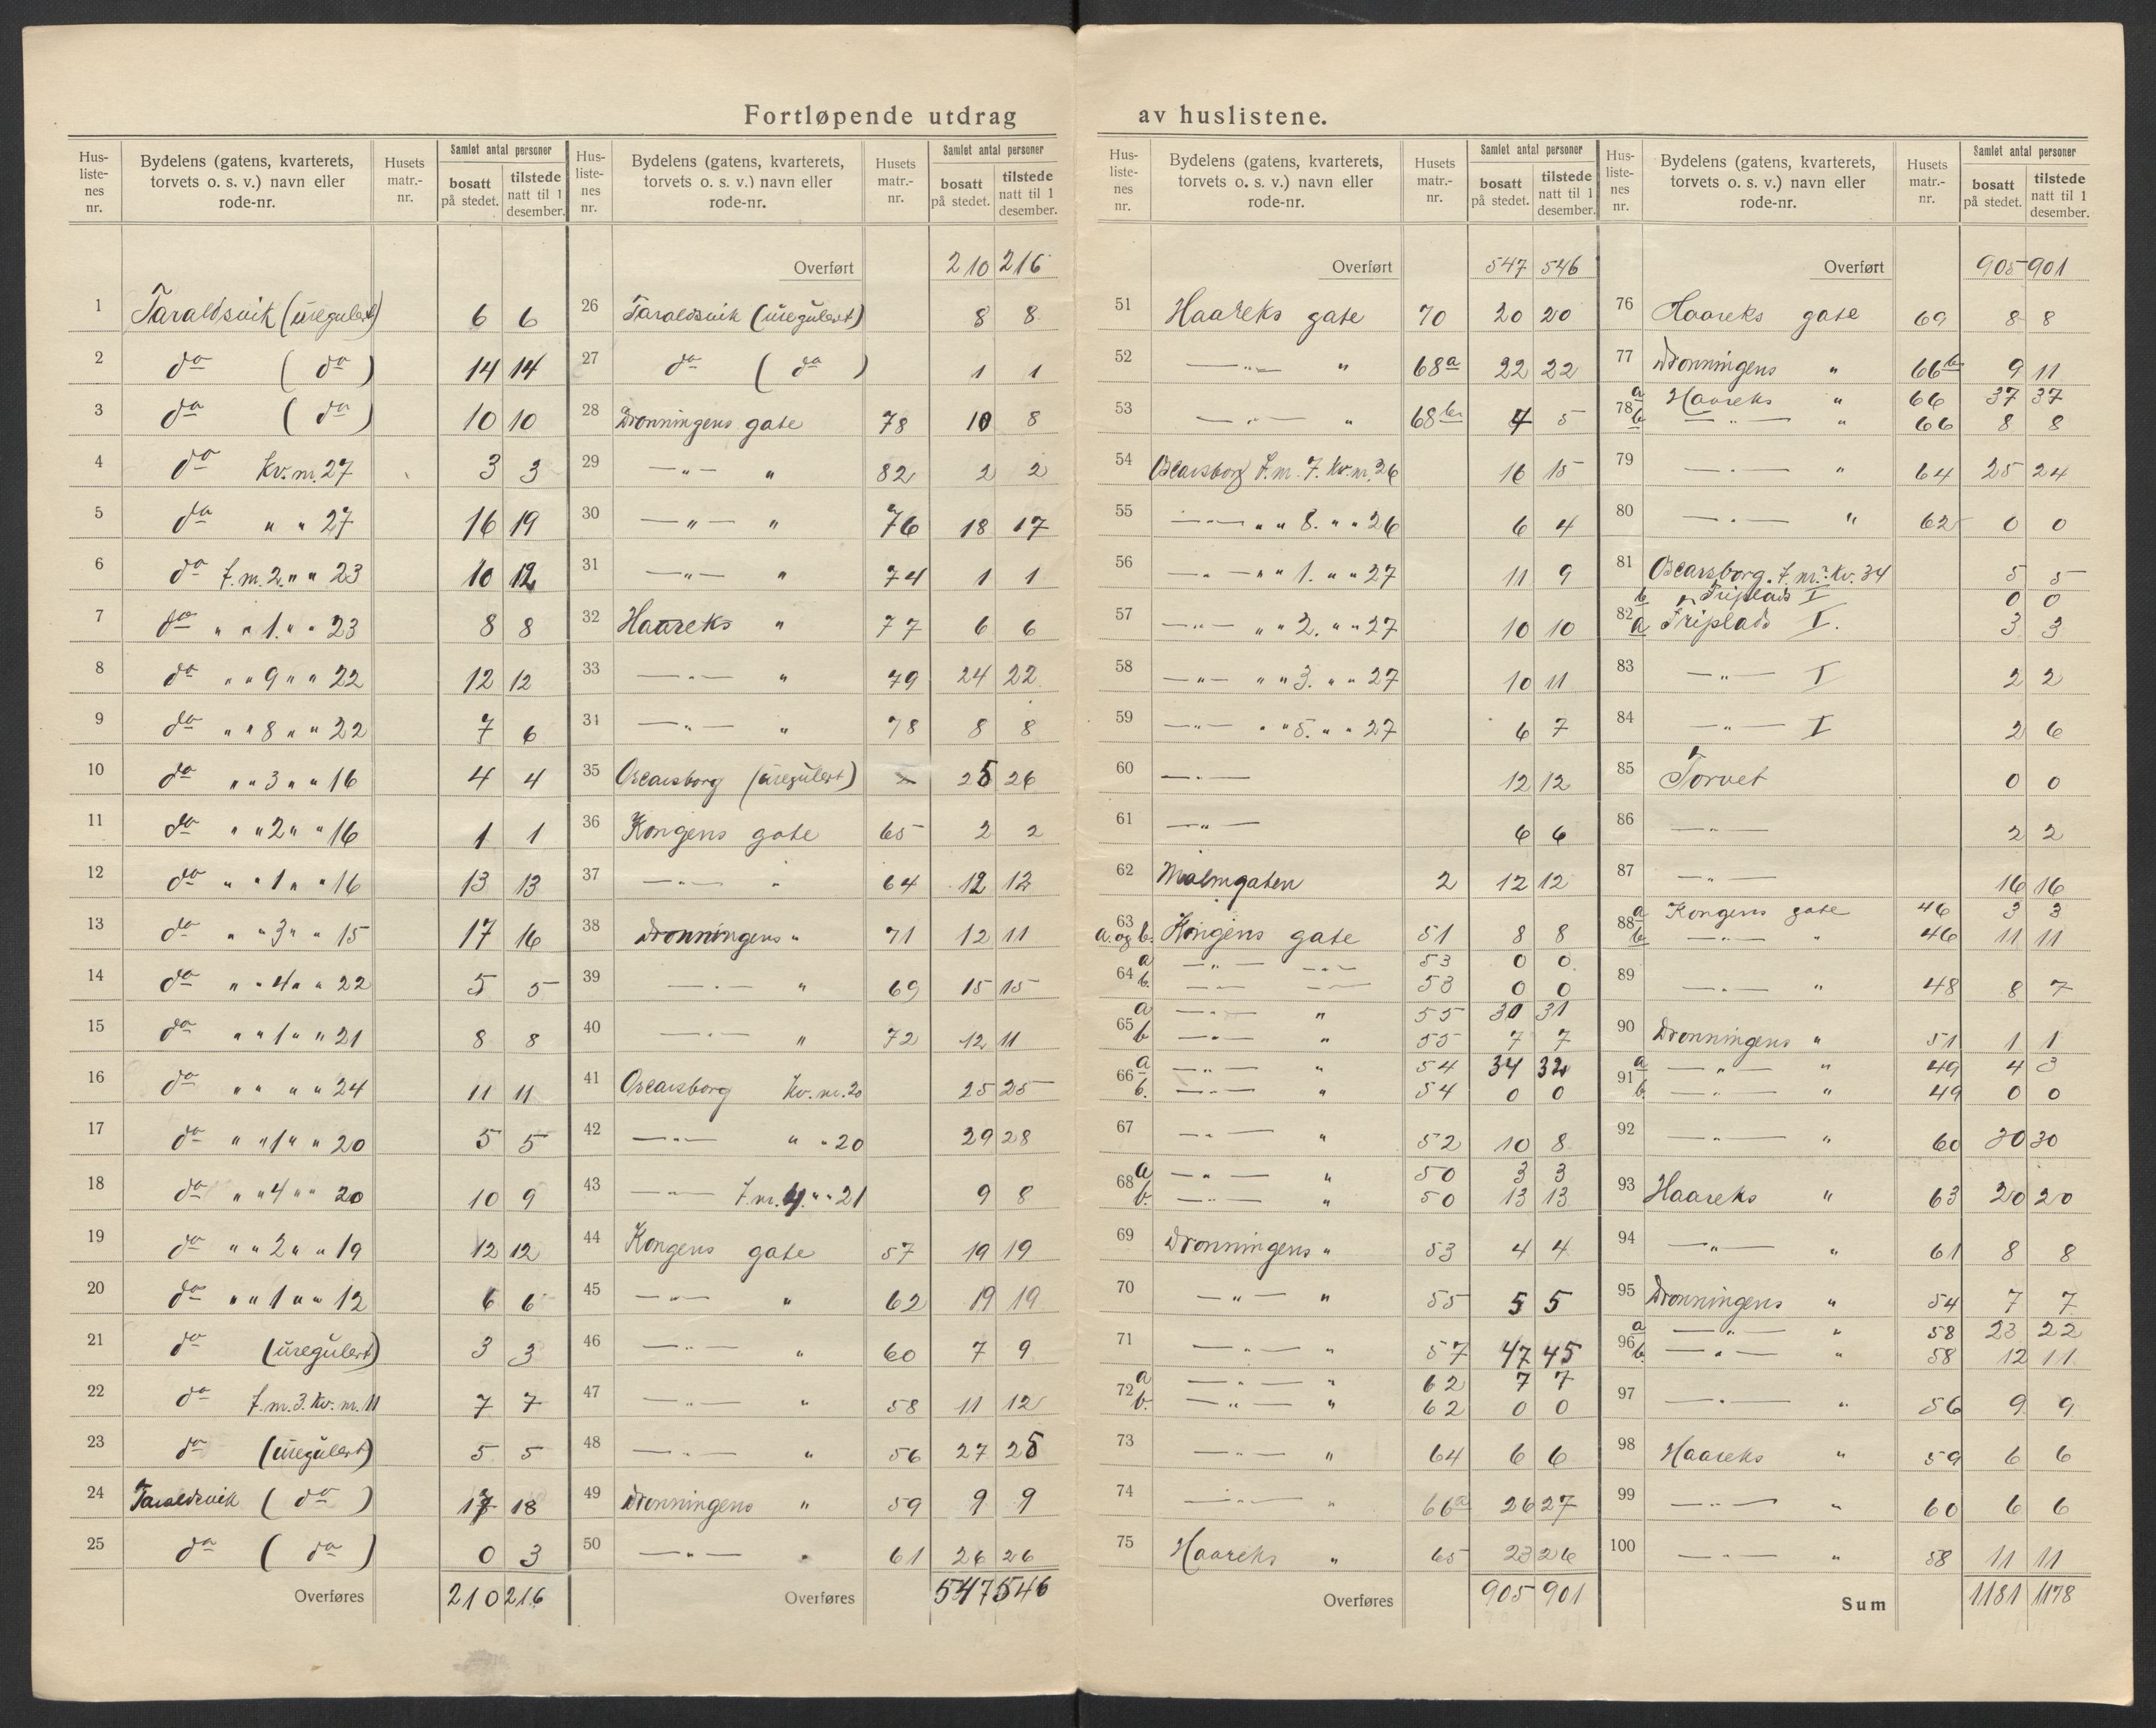 Fortløpende utdrag av huslistene.
Hus-listenes nr. | Bydelens (gatens, kvarterets, torvets o. s. v.) navn eller rode-nr. | Husets matr.-nr. | Samlet antal personer bosatt på stedet. | tilstede natt til 1 desember.
1 Taraldsvik (uregulert) 6 6
2 do ( do ) 14 14
3 do ( do ) 10 10
4 do Kv. nr. 27 3 3
5 do " " 27 16 19
6 do T. m. 2. " " 23 10 12
7 do " " 1. " " 23 8 8
8 do " " 9 " " 22 12 12
9 do " " 8 " " 22 7 6
10 do " " 3 " " 16 4 4
11 do " " 2 " " 16 1 1
12 do " " 1 " " 16 13 13
13 do " " 3 " " 15 17 16
14 do " " 4 " " 22 5 5
15 do " " 1 " " 21 8 8
16 do " " " " 24 11 11
17 do " " 1 " " 20 5 5
18 do " " 4 " " 20 10 9
19 do " " 2 " " 19 12 12
20 do " " 1 " " 12 6 6
21 do (uregulert) 3 3
22 do T. m. 3. Kv. nr. 11 7 7
23 do (uregulert) 5 5
24 Taraldsvik ( do ) 17 18
25 do ( do ) 0 3
Overføres 210 216
Hus-listenes nr. | Bydelens (gatens, kvarterets, torvets o. s. v.) navn eller rode-nr. | Husets matr.-nr. | Samlet antal personer bosatt på stedet. | tilstede natt til 1 desember.
Overført 210 216
26 Taraldsvik (uregulert) 8 8
27 do ( do ) 1 1
28 Dronningens gate 78 10 8
29 — " — " 82 2 2
30 — " — " 76 18 17
31 — " — " 74 1 1
32 Haareks " 77 6 6
33 — " — " 79 24 22
34 — " — " 78 8 8
35 Oscarsborg (uregulert) 25 26
36 Kongens gate 65 2 2
37 — " — " 64 12 12
38 Dronningens " 71 12 11
39 — " — " 69 15 15
40 — " — " 72 12 11
41 Oscarsborg Kv. nr. 20 25 25
42 — " — " " 20 29 28
43 — " — T. m. 4. " " 21 9 8
44 Kongens gate 57 19 19
45 — " — " 62 19 19
46 — " — " 60 7 9
47 — " — " 58 11 12
48 — " — " 56 27 25
49 Dronningens " 59 9 9
50 — " — " 61 26 26
Overføres 547 546
Hus-listenes nr. | Bydelens (gatens, kvarterets, torvets o. s. v.) navn eller rode-nr. | Husets matr.-nr. | Samlet antal personer bosatt på stedet. | tilstede natt til 1 desember.
Overført 547 546
51 Haareks gate 70 20 20
52 — " — " 68a 22 22
53 — " — " 68b 7 5
54 Oscarsborg T. m. 7. Kv. nr. 26 16 15
55 — " — " " 8. " " 26 6 4
56 — " — " " 1. " " 27 11 9
57 — " — " " 2. " " 27 10 10
58 — " — " " 3. " " 27 10 11
59 — " — " " 5. " " 27 6 7
60 — " — 12 12
61 — " — 6 6
62 Malmgaten 2 12 12
63 a. og b. Kongens gate 51 8 8
64 a — " — — " — 53 0 0
b. — " — — " — 53 0 0
65 a — " — " 55 30 31
b — " — " 55 7 7
66 a — " — " 54 34 32
b. — " — " 54 0 0
67 — " — " 52 10 8
68 a — " — " 50 3 3
b. — " — " 50 13 13
69 Dronningens " 53 4 4
70 — " — " 55 5 5
71 — " — " 57 47 45
72 a — " — " 62 7 7
b. — " — " 62 0 0
73 — " — " 64 6 6
74 — " — " 66a 26 27
75 Haareks " 65 23 26
Overføres 905 901
Hus-listenes nr. | Bydelens (gatens, kvarterets, torvets o. s. v.) navn eller rode-nr. | Husets matr.-nr. | Samlet antal personer bosatt på stedet. | tilstede natt til 1 desember.
Overført 905 901
76 Haareks gate 69 8 8
77 Dronningens " 66b 9 11
78 a Haareks " 66 37 37
b — " — " 66 8 8
79 — " — " 64 25 24
80 — " — " 62 0 0
81 Oscarsborg. T. m. Kv. 34 5 5
b " Friplads I 0 0
82 a Friplads I. 3 3
83 — " — I 2 2
84 — " — I 2 6
85 Torvet 0 0
86 — " — 2 2
87 — " — 16 16
88 a Kongens gate 46 3 3
b — " — " 46 11 11
89 — " — " 48 8 7
90 Dronningens " 51 1 1
91 a — " — " 49 4 3
b. — " — " 49 0 0
92 — " — " 60 30 30
93 Haareks " 63 20 20
94 — " — " 61 8 8
95 Dronningens " 54 7 7
96 a — " — " 58 23 22
b. — " — " 58 12 11
97 — " — " 56 9 9
98 Haareks " 59 6 6
99 — " — " 60 6 6
100 — " — " 58 11 11
Sum 1181 1178